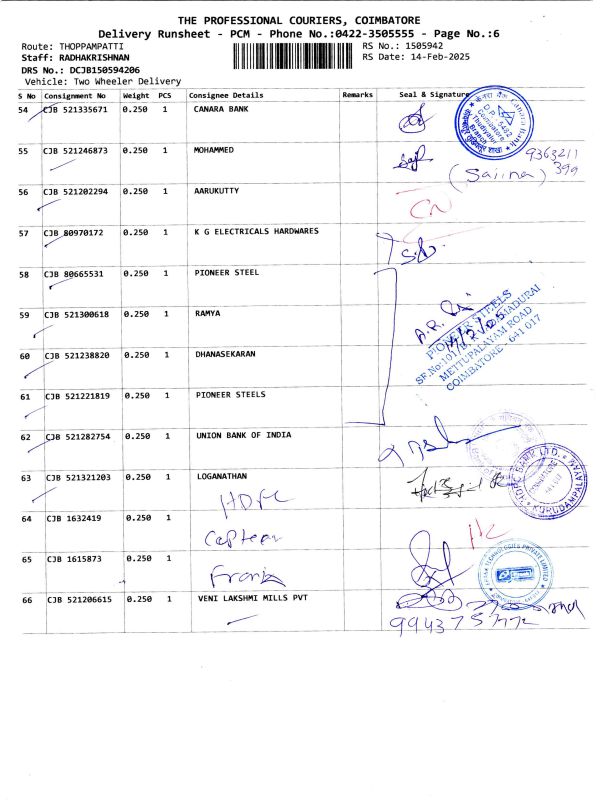 THE PROFESSIONAL COURIERS, COIMBATORE
Delivery Runsheet - PCM - Phone No.:0422-3505555 - Page No.:6
Route: THOPPAMPATTI RS No.: 1505942
Staff: RADHAKRISHNAN RS Date: 14-Feb-2025
DRS No.: DCJB150594206
Vehicle: Two Wheeler Delivery
S No Consignment No Weight PCS Consignee Details Remarks Seal & Signature
54 CJB 521335671 0.250 1 CANARA BANK
55 CJB 521246873 0.250 1 MOHAMMED
9363211
399
(Sajina)
56 CJB 521202294 0.250 1 AARUKUTTY
57 CJB 80970172 0.250 1 K G ELECTRICALS HARDWARES
58 CJB 80665531 0.250 1 PIONEER STEEL
59 CJB 521300618 0.250 1 RAMYA
PIONEER STEELS
METTUPALAYAM ROAD
COIMBATORE - 641 017
60 CJB 521238820 0.250 1 DHANASEKARAN
61 CJB 521221819 0.250 1 PIONEER STEELS
62 CJB 521282754 0.250 1 UNION BANK OF INDIA
63 CJB 521321203 0.250 1 LOGANATHAN
HDFC
64 CJB 1632419 0.250 1
65 CJB 1615873 0.250 1
66 CJB 521206615 0.250 1 VENI LAKSHMI MILLS PVT